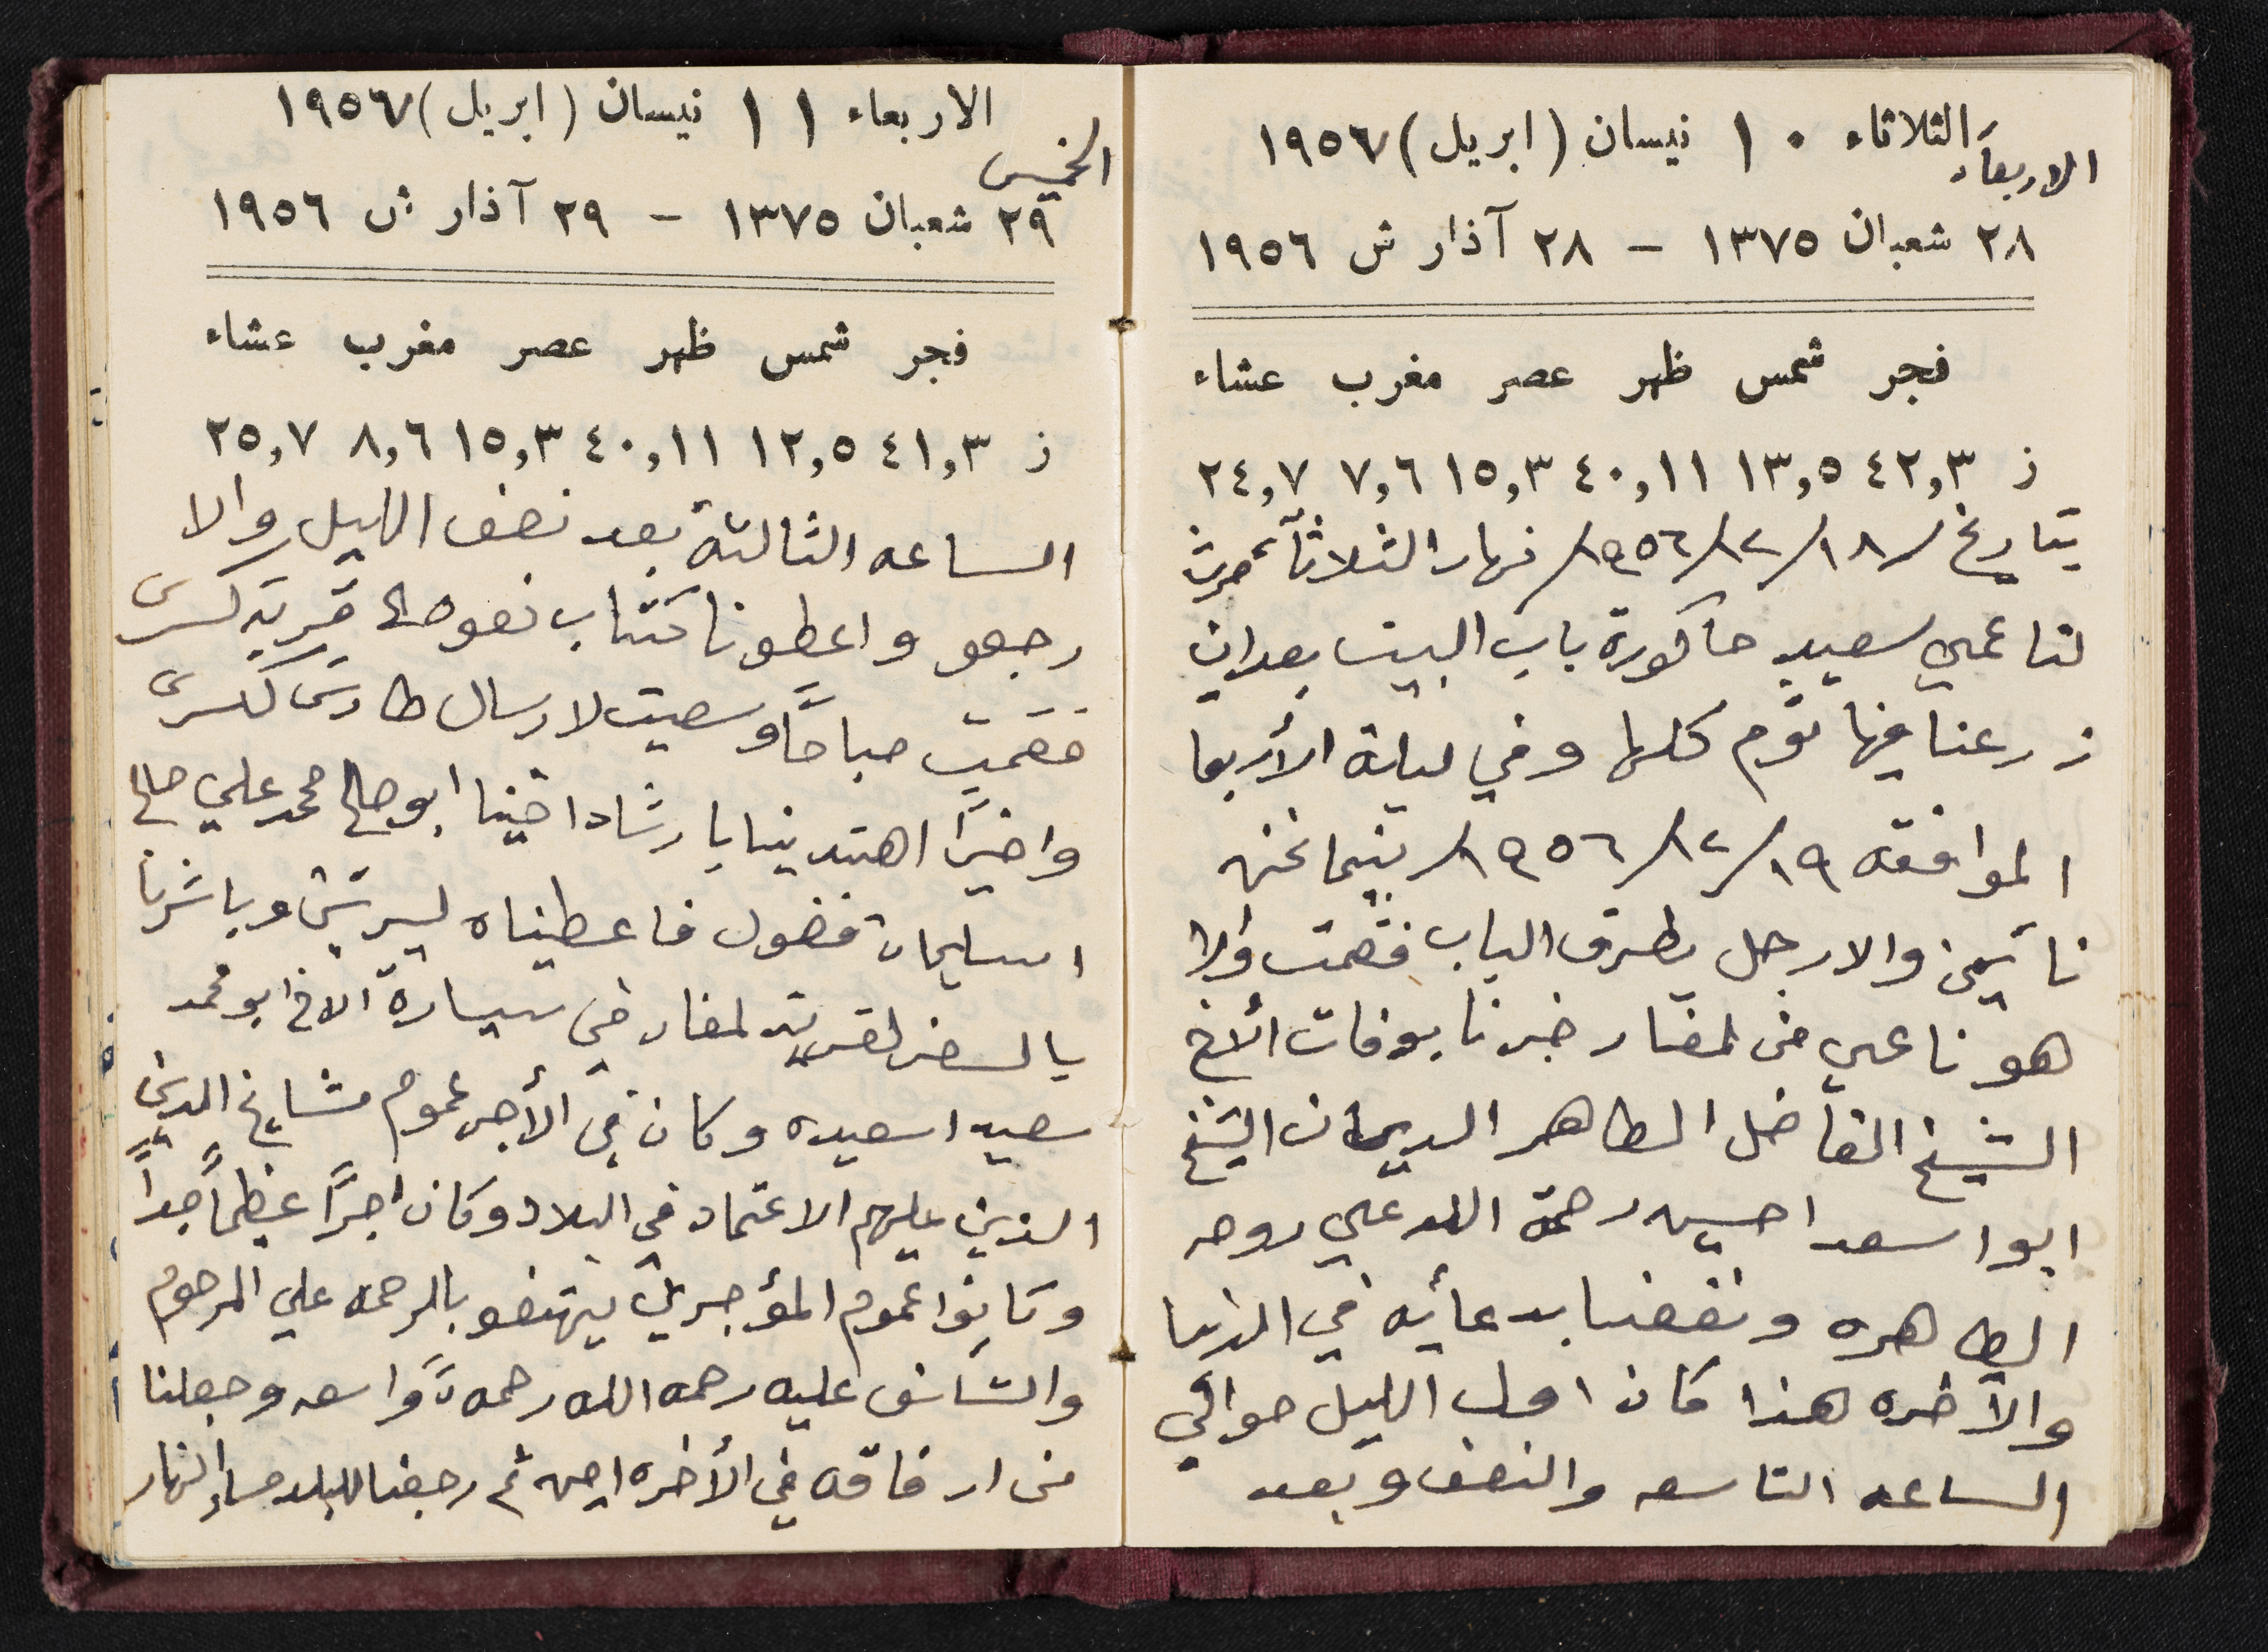 الثلاثاء ١٠ نيسان (ابريل) ١٩٥٦٧
الاربعاء
٢٨ شعبان ١٣٧٥ – ٢٨ آذار ش ١٩٥٦
فجر شمس ظهر عصر مغرب عشاء
ز ٤٢,٣ ١٣,٥ ٤٠,١١ ١٥,٣ ٧,٦ ٢٤,٧
بتاريخ ١٨/١٢/١٩٥٦/ نهار الثلاثآء حرث
لنا عمي سعيد حاكورة باب البيت بعد ان
زرعنا فيها ثوم كلها وفي ليلة الأربعا
الموافقه ١٩/١٢/١٩٥٦/ بينما نحن
نائمين والا رجل يطرق الباب فقمت والا
هو ناعي من لمغار خبرنا بوفات الأخ
الشيخ الفاضل الطاهر الديان الشيخ
ابوا سعد احسين رحمة الله علي روحه
الطاهره ونفعنا بدعائه في الدنيا
والآخره هذا كان اول الليل حوالي
الساعه التاسعه والنصف وبعد
الاربعاء ١١ نيسان (ابريل) ١٩٥٦٧
الخميس
٢٩ شعبان ١٣٧٥ – ٢٩ آذار ش ١٩٥٦
فجر شمس ظهر عصر مغرب عشاء
ز ٤١,٣ ١٢,٥ ٤٠,١١ ١٥,٣ ٨,٦ ٢٥,٧
الساعه الثالثة بعد نصف الليل والا
رجعو واعطونا كتاب نعوه الى قرية كسرى
فقمت صباحاً وسعيت لارسال طارش لكسرى
واخيراً اهتدينا بارشاد اخينا ابو صالح محمد علي صالح
اسليمان فضول فاعطيناه ليرتين وباشرنا
بالسفر لقرية لمغار في سيارة الاخ ابو محمد
سعيد اسعيده وكان في الأجر عموم مشايخ الدين
الذين عليهم الاعتماد في البلاد وكان اجراً عظيماً جداً
وكانوا عموم المؤجرين يهتفو بالرحمه علي المرحوم
والتأسف عليه رحمه الله رحمةً واسعه وجعلنا
من ارفاقه في الأخره امين ثم رجعنا للبلد مساء النهار